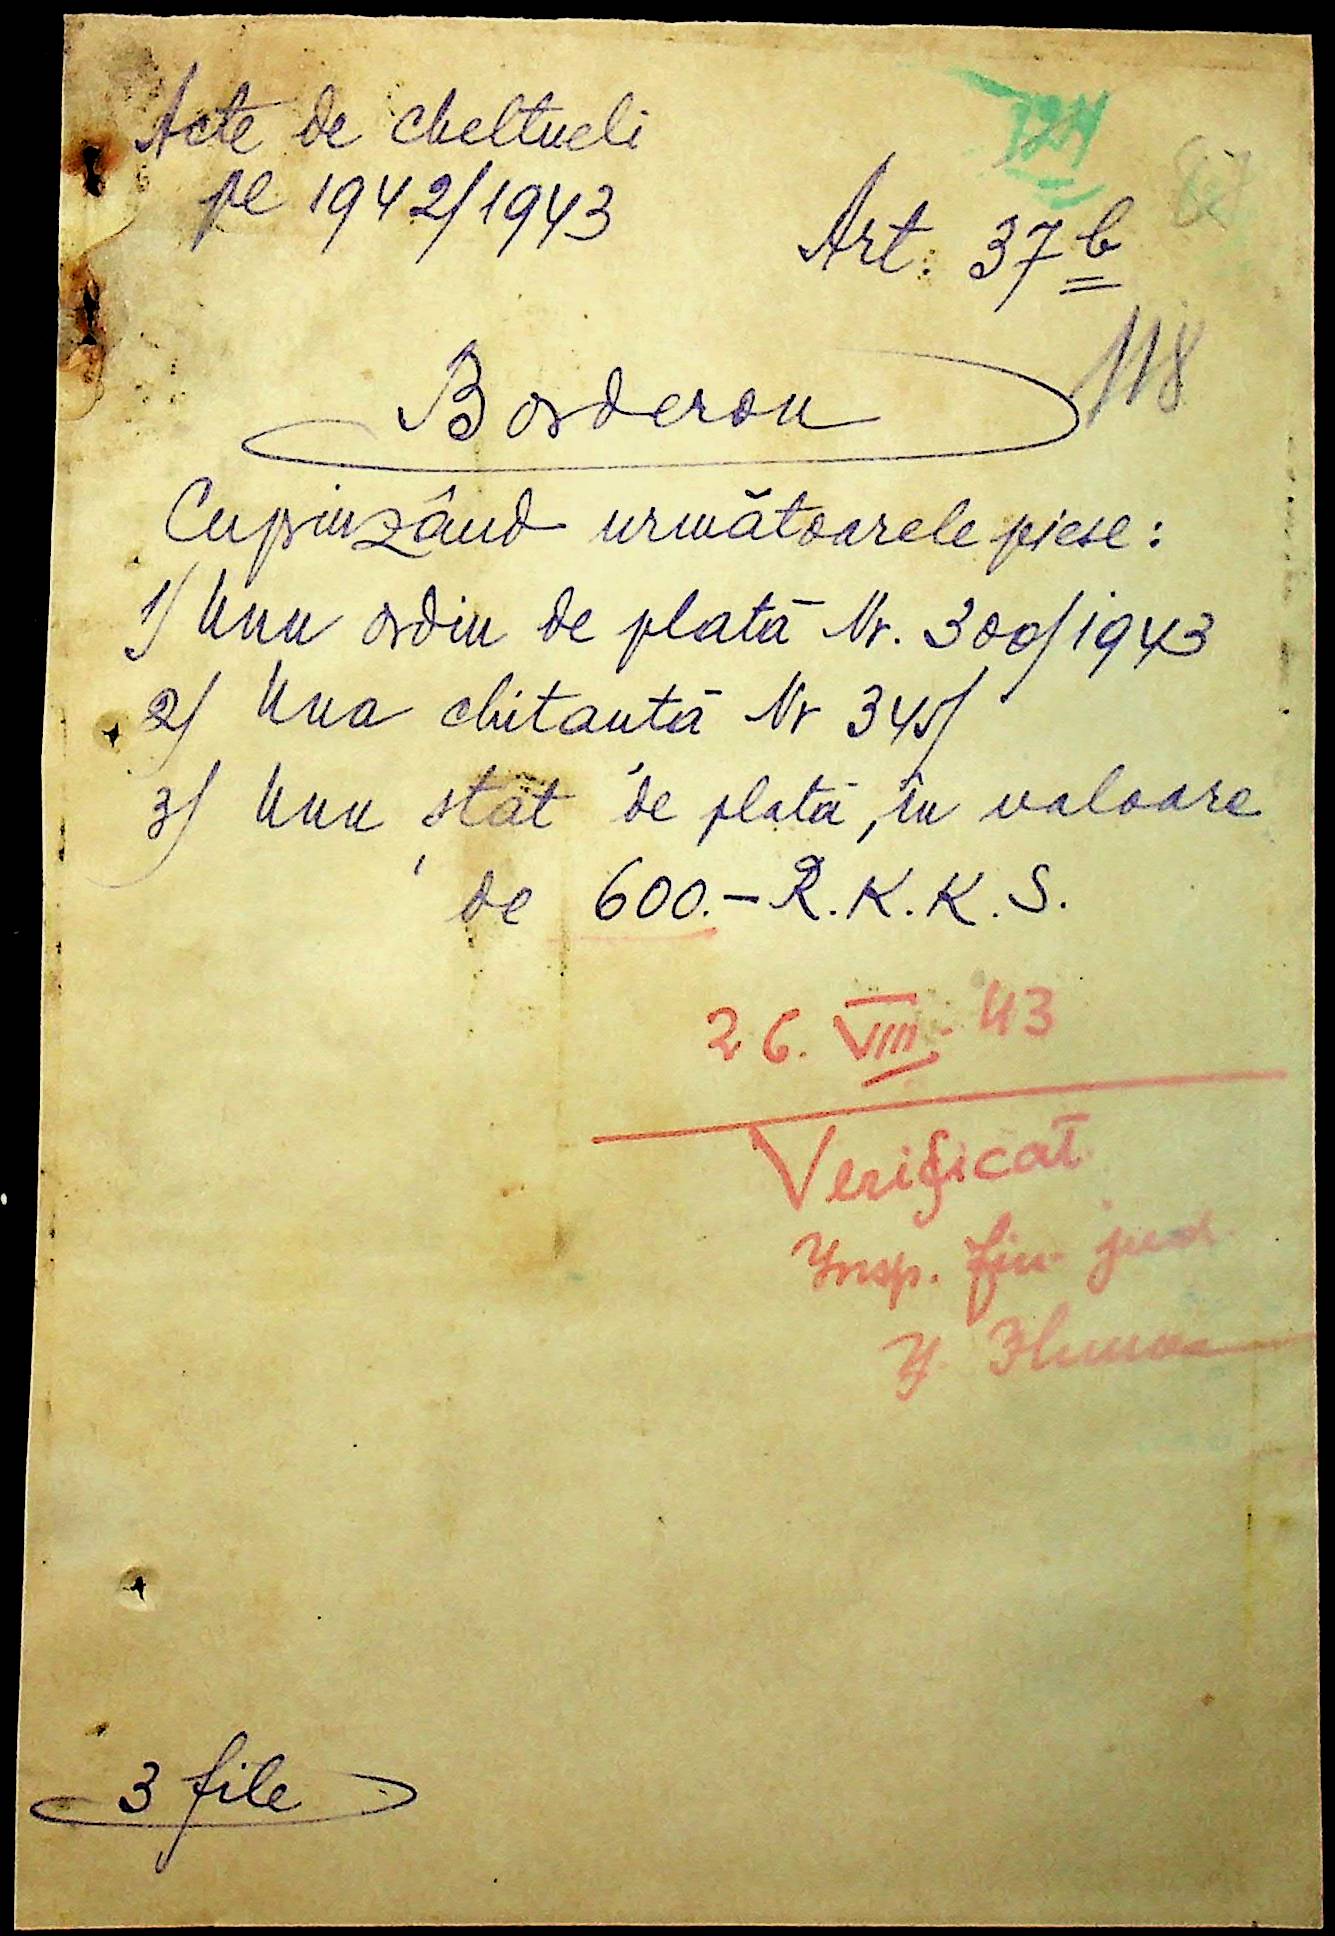 Acte de cheltueli
pe 1942/1943
Art. 37 b
118
Borderou
Cuprinzând următoarele piese:
1) Unu ordin de plată Nr. 300/1943
2) Una chitantă Nr 345/
3) Unu stat de plată, în valoare
de 600.- R.K.K.S.
26. VIII - 43
Verificat
Insp. fin. jud
3 file